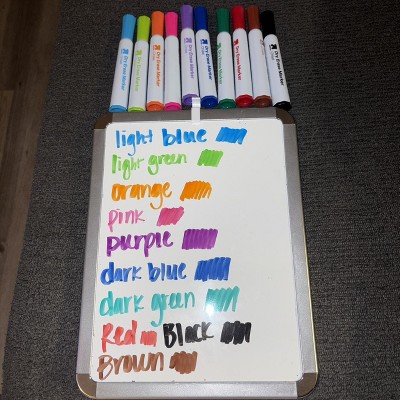 Dry Erase Marker
Dry Erase Marker
Dry Erase Marker
Dry Erase Marker
Dry Erase Marker
Dry Erase Marker
Dry Erase Marker
Dry Erase Marker
Dry Erase Marker
Dry Erase Marker
light blue
light green
orange
pink
purple
dark blue
dark green
Red Black
Brown